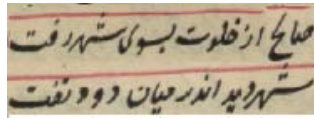 صالح از خلوت بسوی شهر رفت
شهر دید اندر میان دود و تفت